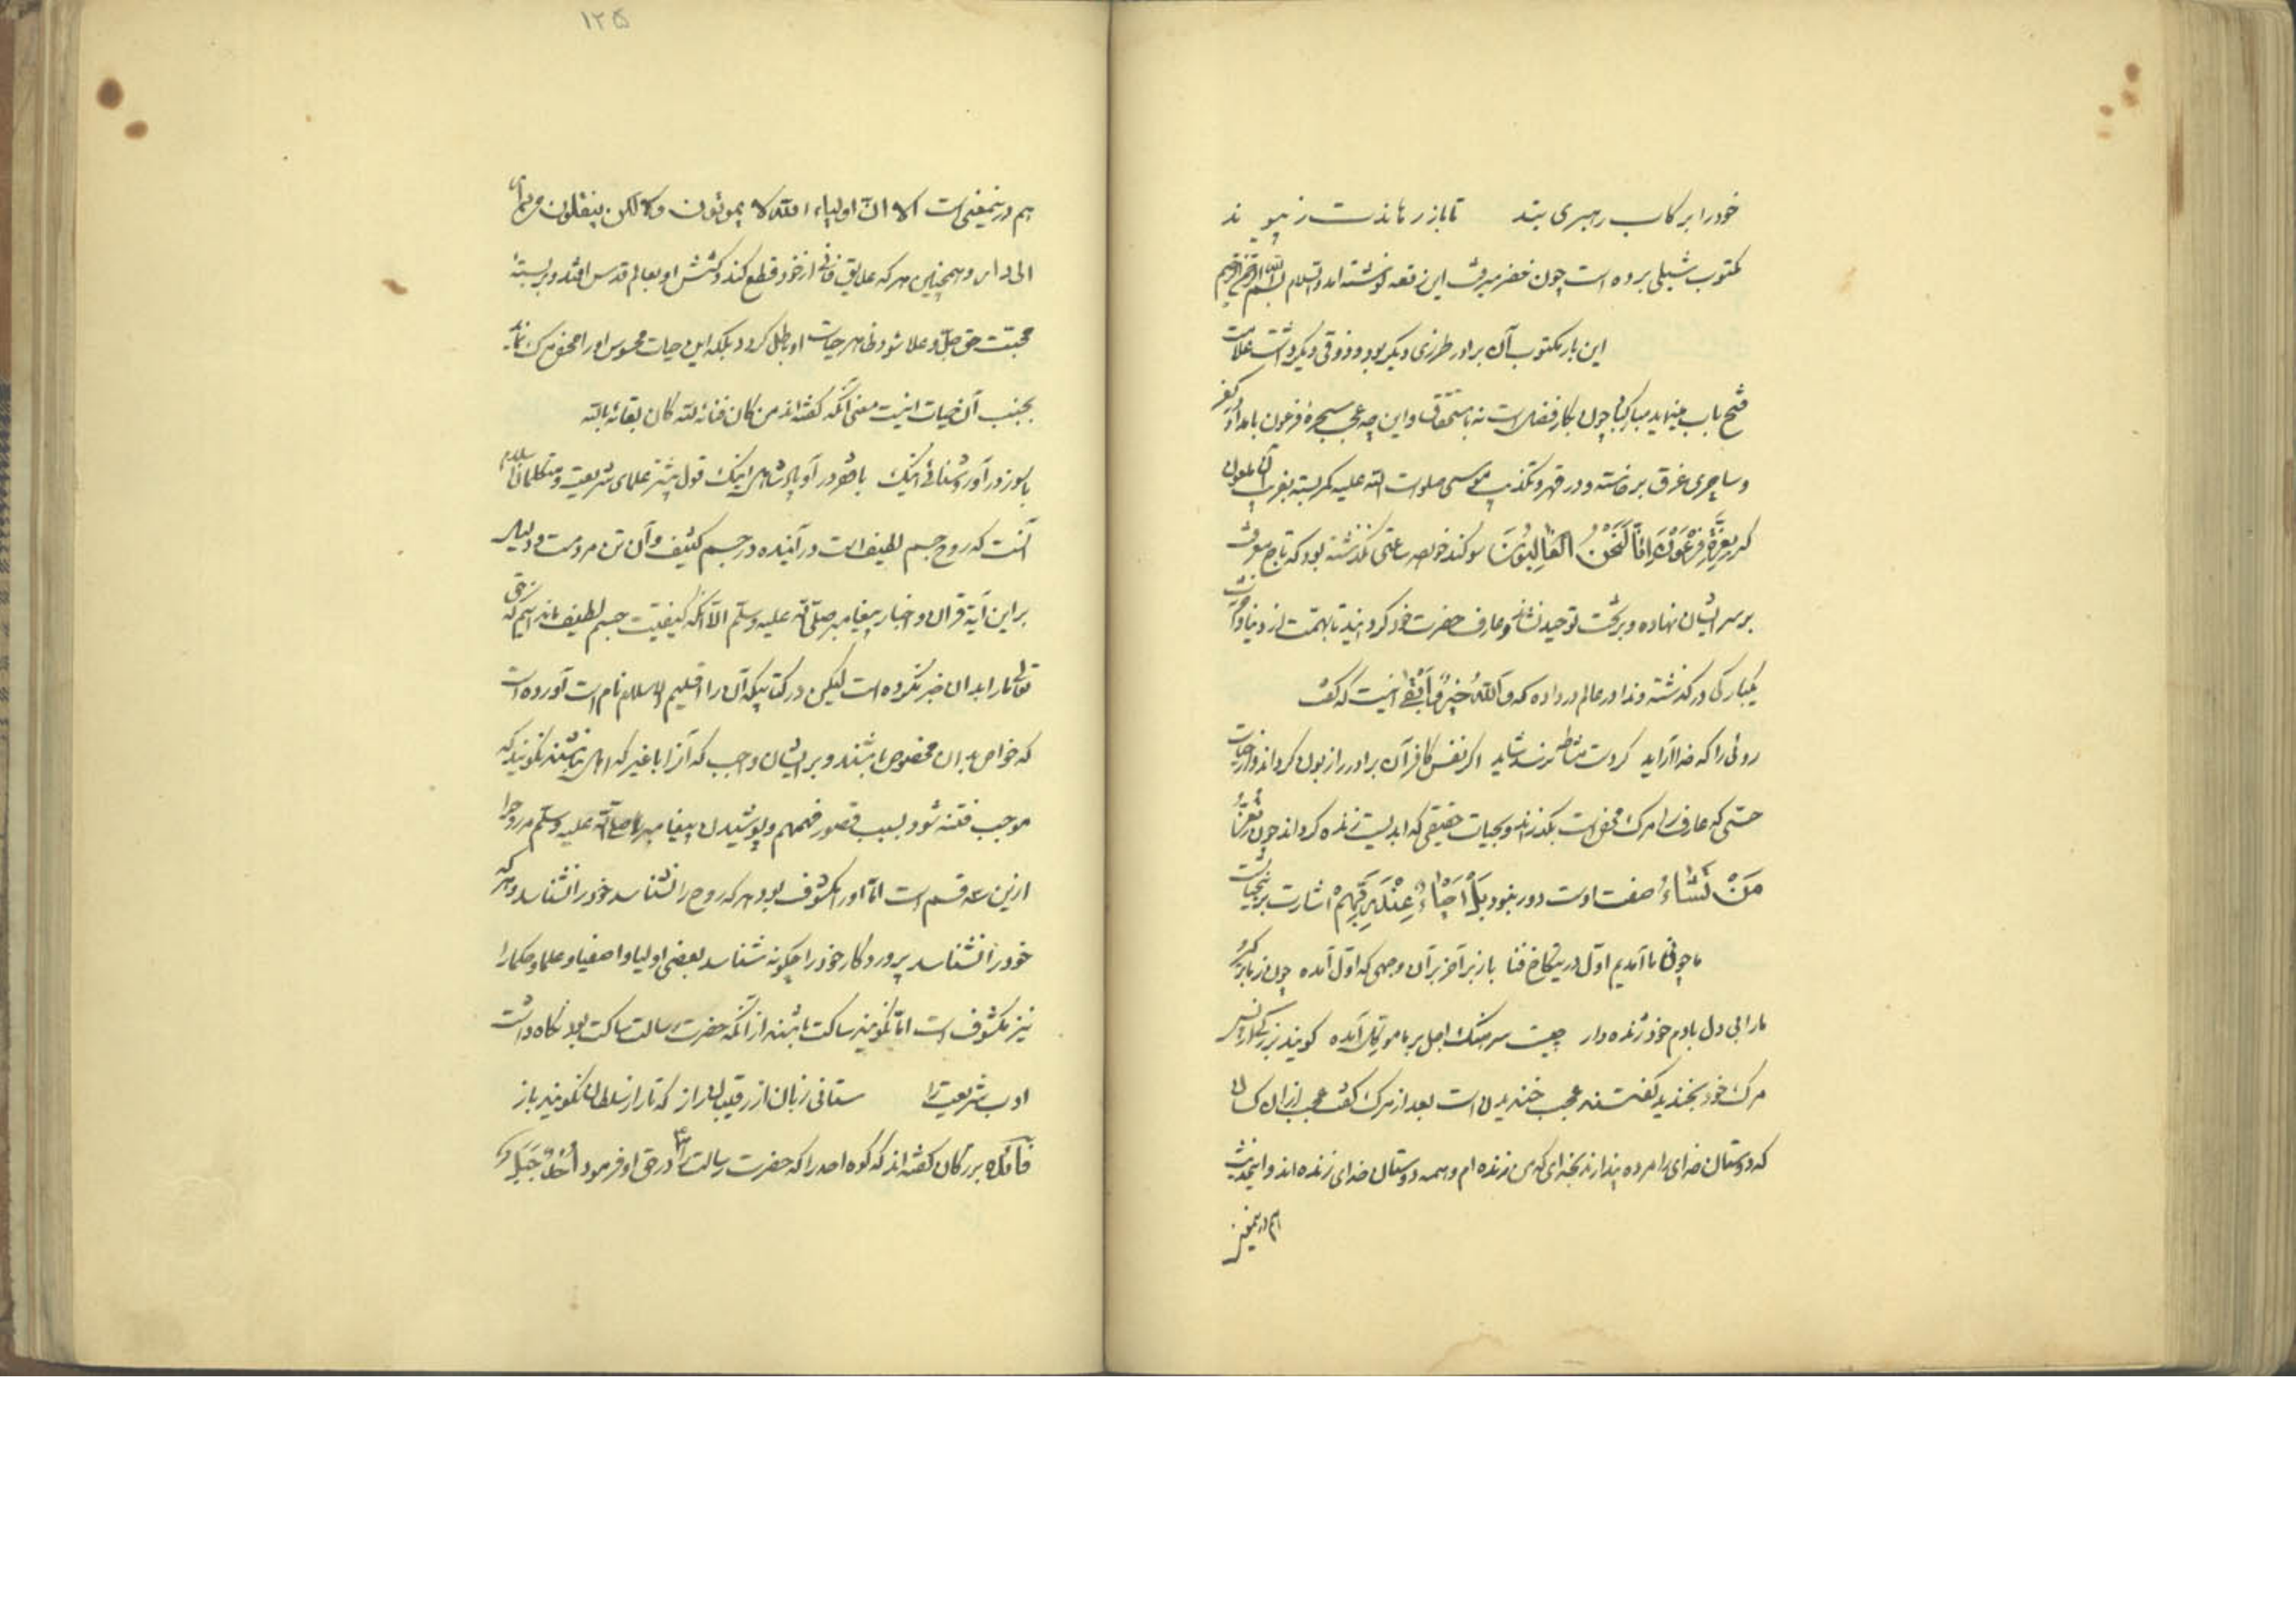 خود را بر رکاب رهبری بند تا باز رهاندت ز پیوند
مکتوب شبلی برده است چون خضر میرفت این رقعه نوشته آمد والسلام بسم الله الرحمن الرحیم
این بار مکتوب آن برادر طرزی دیگر بود و ذوقی دیگر داشت علامت
فتح باب مینماید مبارکباد چون کار فضل است نه باستحقاق و این چه عجب سحرهٔ فرعون بامداد در کفر
و ساحری غرق برخاسته و در قهر و تکذیب موسی صلوات الله علیه کمر بسته بقرب آن ملعون
که بِعِزَّةِ فِرْعَوْنَ اِنَّا لَنَحْنُ الْغَالِبُونَ سوگند خورده ساعتی نگذشته بود که تاج معرفت
بر سر ایشان نهاده و بر تخت توحید نشانده و عارف حضرت خود گردانید تا بهمت از دنیا و آخرت
یکبارگی در گذشته و ندا در عالم در داده که وَاللهُ خَیْرٌ وَّاَبْقٰی اینست که گفت
روئی را که خدا آراید گر دست مشاطه نرسد شاید اگر نفس کافر آن برادر را زبون گرداند و از حیات
حسّی که عارف را مرگ محض است بگذراند و بحیات حقیقی که ابدیست زنده گرداند چون تُعِزُّ
مَنْ تَشَاءُ صفت اوست دور نبود بَلْ اَحْیَاءٌ عِنْدَ رَبِّهِمْ اشارت بر این حیات است
ما چو فانی آمدیم اول در این کاخ فنا باز بر آخر بر آن وجهی که اول آمده
ما را بی دل بادم خود زنده دار چیست سرهنگ اجل بر ما موکل آمده گویند بزرگی در
مرگ خود بخندید گفتند عجب خندیدن است بعد از مرگ گفت عجب از آن کسان
که دوستان خدای را مرده پندارند بخدای که من زنده ام و همه دوستان خدای زنده اند و این حدیث
هم درینمعنی
۱۲۵
هم درینمعنی است الا ان اولیاء الله لا یموتون ولکن ینقلون من دار
الی دار و همچنین هر که علایق فانی از خود قطع کند و کشش او بعالم قدس افتد و بر بستهٔ
محبت حق جل و علا شود ظاهر حیات او باطل گردد بلکه این حیات محسوس او را محض مرگ نماید
بجنب آن حیات اینست معنی آنکه گفته اند من کان فنائه لله کان بقائه بالله
با سوز در آورد روشنائی اینک با فقر در آ و پادشاهی اینک قول بیشتر علمای شریعت و متکلمان اسلام
آنست که روح جسم لطیف است در آینده در جسم کثیف و آن تن مردمست و دلیل
بر این آیهٔ قرآن و اخبار پیغامبر صلی الله علیه وسلم الا آنکه کیفیت جسم لطیف ندانیم که حق
تعالی ما را بدان خبر نکرده است لیکن در کتابیکه آن را اقلیم الاسلام نام است آورده است
که خواص بدان مخصوص باشند و بر ایشان واجب که آنرا با غیر که اهل نباشند نگویند که
موجب فتنه شود بسبب قصور فهم و پوشیدن پیغامبر ما صلی الله علیه وسلم مر روح را
ازین سه قسم است اما او را مکشوف بود هر که روح را نشناسد خود را نشناسد و هر که
خود را نشناسد پروردگار خود را چگونه شناسد بعضی اولیا و اصفیا و علما و حکما را
نیز مکشوف است اما نگویند ساکت باشند از آنکه حضرت رسالت ساکت بود نگاه داشت
ادب شریعت را ستانی زبان از رقیبان راز که تا راز سلطان نگویند باز
فائده بزرگان گفته اند که کوه احد را که حضرت رسالت در حق او فرمود اُحُدٌ جَبَلٌ